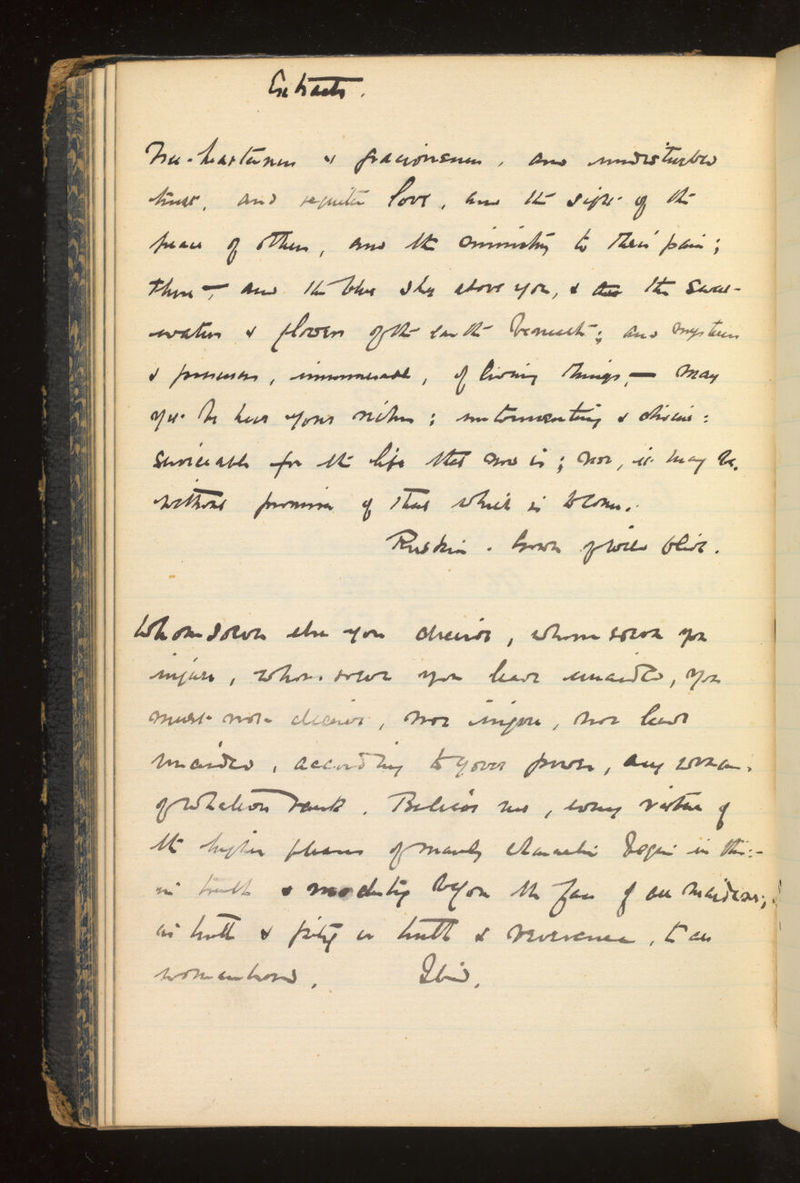 Extracts.
Free-heartedness & graciousness, and undisturbed
trust, and requited love, and the sight of the
peace of others, and the ministry to their pain;
these — and the blue sky above you, & the sweet
waters & flowers of the earth beneath; and mysteries
& presences, innumerable, of living things, — may
yet be here your riches; untormenting & divine:
serviceable for the life that now is; nor, it may be,
without promise of that which is to come.
Ruskin. Crown of wild olive.
Whomsoever else you deceive, whomsoever you
injure, whomsoever you leave unaided, you
must not deceive, nor injure, nor leave
unaided, according to your power, any woman
of whatever rank. Believe me, every virtue of
the higher phases of manly character begins in this:-
in truth & modesty before the face of all maidens;
in truth & pity or truth & reverence, to all
womanhood. Ibid.